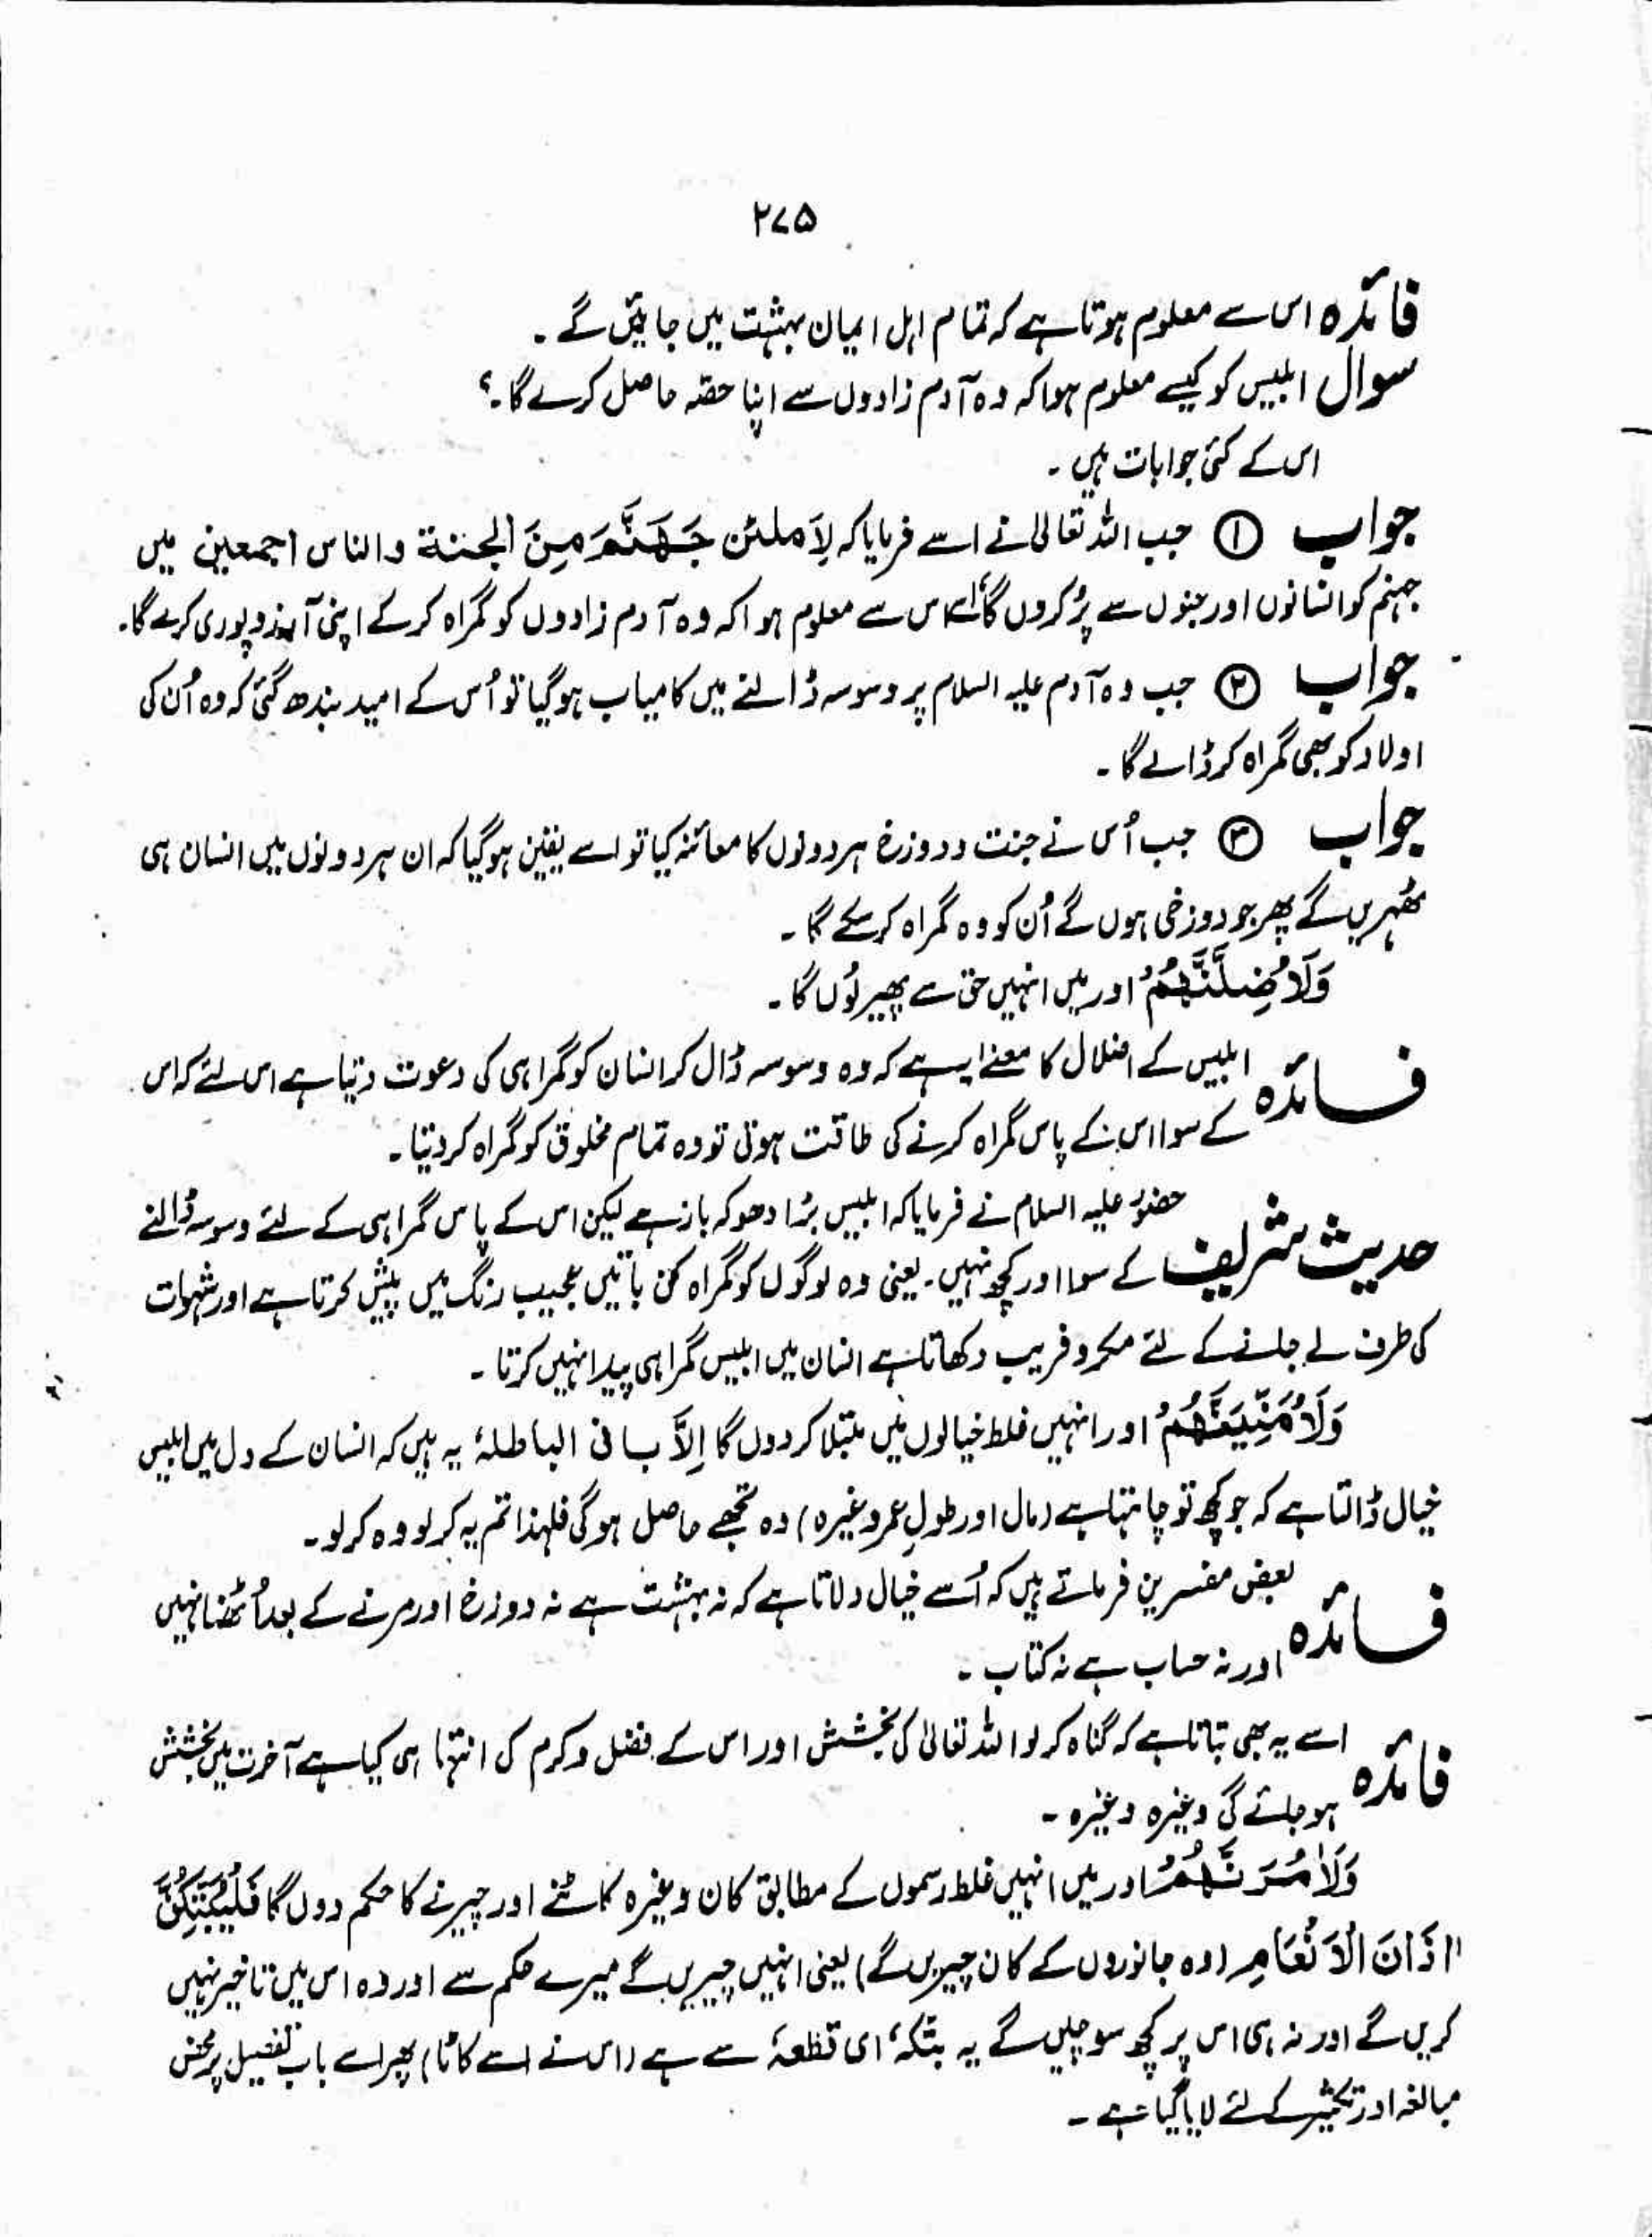 ۲۷۵
فائدہ اس سے معلوم ہوتا ہے کہ تمام اہل ایمان بہشت میں جائیں گے ۔
سوال ابلیس کو کیسے معلوم ہوا کہ وہ آدم زادوں سے اپنا حصّہ حاصل کرے گا ۔؟
اس کے کئی جوابات ہیں ۔
جواب ① جب اللہ تعالیٰ نے اسے فرمایا کہ لَاَملئن جَھَنَّمَ مِنَ الجنة والناس اجمعین میں
جہنم کو انسانوں اور جنوں سے پُر کروں گا اسے اس سے معلوم ہوا کہ وہ آدم زادوں کو گمراہ کر کے اپنی آرزو پوری کرے گا۔
جواب ② جب وہ آدم علیہ السلام پر وسوسہ ڈالنے میں کامیاب ہوگیا تو اُس کے امید بندھ گئی کہ وہ اُن کی
اولاد کو بھی گمراہ کر ڈالے گا ۔
جواب ③ جب اُس نے جنت و دوزخ ہر دونوں کا معائنہ کیا تو اسے یقین ہوگیا کہ ان ہر دونوں میں انسان ہی
ٹھہریں گے پھر جو دوزخی ہوں گے اُن کو وہ گمراہ کر سکے گا ۔
وَلَاُضِلَّنَّھُمْ اور میں انہیں حق سے پھیر لوُں گا ۔
فائدہ ابلیس کے اضلال کا معنےٰ یہ ہے کہ وہ وسوسہ ڈال کر انسان کو گمراہی کی دعوت دیتا ہے اس لئے کہ اس
کے سوا اس کے پاس گمراہ کرنے کی طاقت ہوتی تو وہ تمام مخلوق کو گمراہ کر دیتا ۔
حدیث شریف حضور علیہ السلام نے فرمایا کہ ابلیس بڑا دھوکہ باز ہے لیکن اس کے پاس گمراہی کے لئے وسوسہ ڈالنے
کے سوا اور کچھ نہیں ۔ یعنی وہ لوگوں کو گمراہ کن باتیں عجیب رنگ میں پیش کرتا ہے اور شہوات
کی طرف لے جانے کے لئے مکر و فریب دکھاتا ہے انسان میں ابلیس گمراہی پیدا نہیں کرتا ۔
وَلَاُمَنِّیَنَّھُمْ اور انہیں غلط خیالوں میں مبتلا کر دوں گا اِلاَّ بانی الباطلۂ یہ ہیں کہ انسان کے دل میں ابلیس
خیال ڈالتا ہے کہ جو کچھ تو چاہتا ہے (مال اور طولِ عمر وغیرہ) وہ تجھے حاصل ہوگی فلہذا تم یہ کر لو وہ کر لو ۔
فائدہ بعض مفسرین فرماتے ہیں کہ اُسے خیال دلاتا ہے کہ نہ بہشت ہے نہ دوزخ اور مرنے کے بعد اُٹھنا نہیں
اور نہ حساب ہے نہ کتاب ۔
فائدہ اسے یہ بھی بتاتا ہے کہ گناہ کر لو اللہ تعالیٰ کی بخشش اور اس کے فضل و کرم کی انتہا ہی کیا ہے آخرت میں بخشش
ہو جائے گی وغیرہ وغیرہ ۔
وَلَاٰمُرَنَّھُمْ اور میں انہیں غلط رسموں کے مطابق کان وغیرہ کاٹنے اور چیرنے کا حکم دوں گا فَلَیُبَتِّکُنَّ
اٰذَانَ الْاَنْعَامِ (وہ جانوروں کے کان چیریں گے) یعنی انہیں چیریں گے میرے حکم سے اور وہ اس میں تاخیر نہیں
کریں گے اور نہ ہی اس پر کچھ سوچیں گے یہ بتّکہٗ ای قطعہٗ سے ہے (اس نے اسے کاٹا) پھر اسے باب تفعیل پر محض
مبالغہ اور تکثیر کے لئے لایا گیا ہے ۔